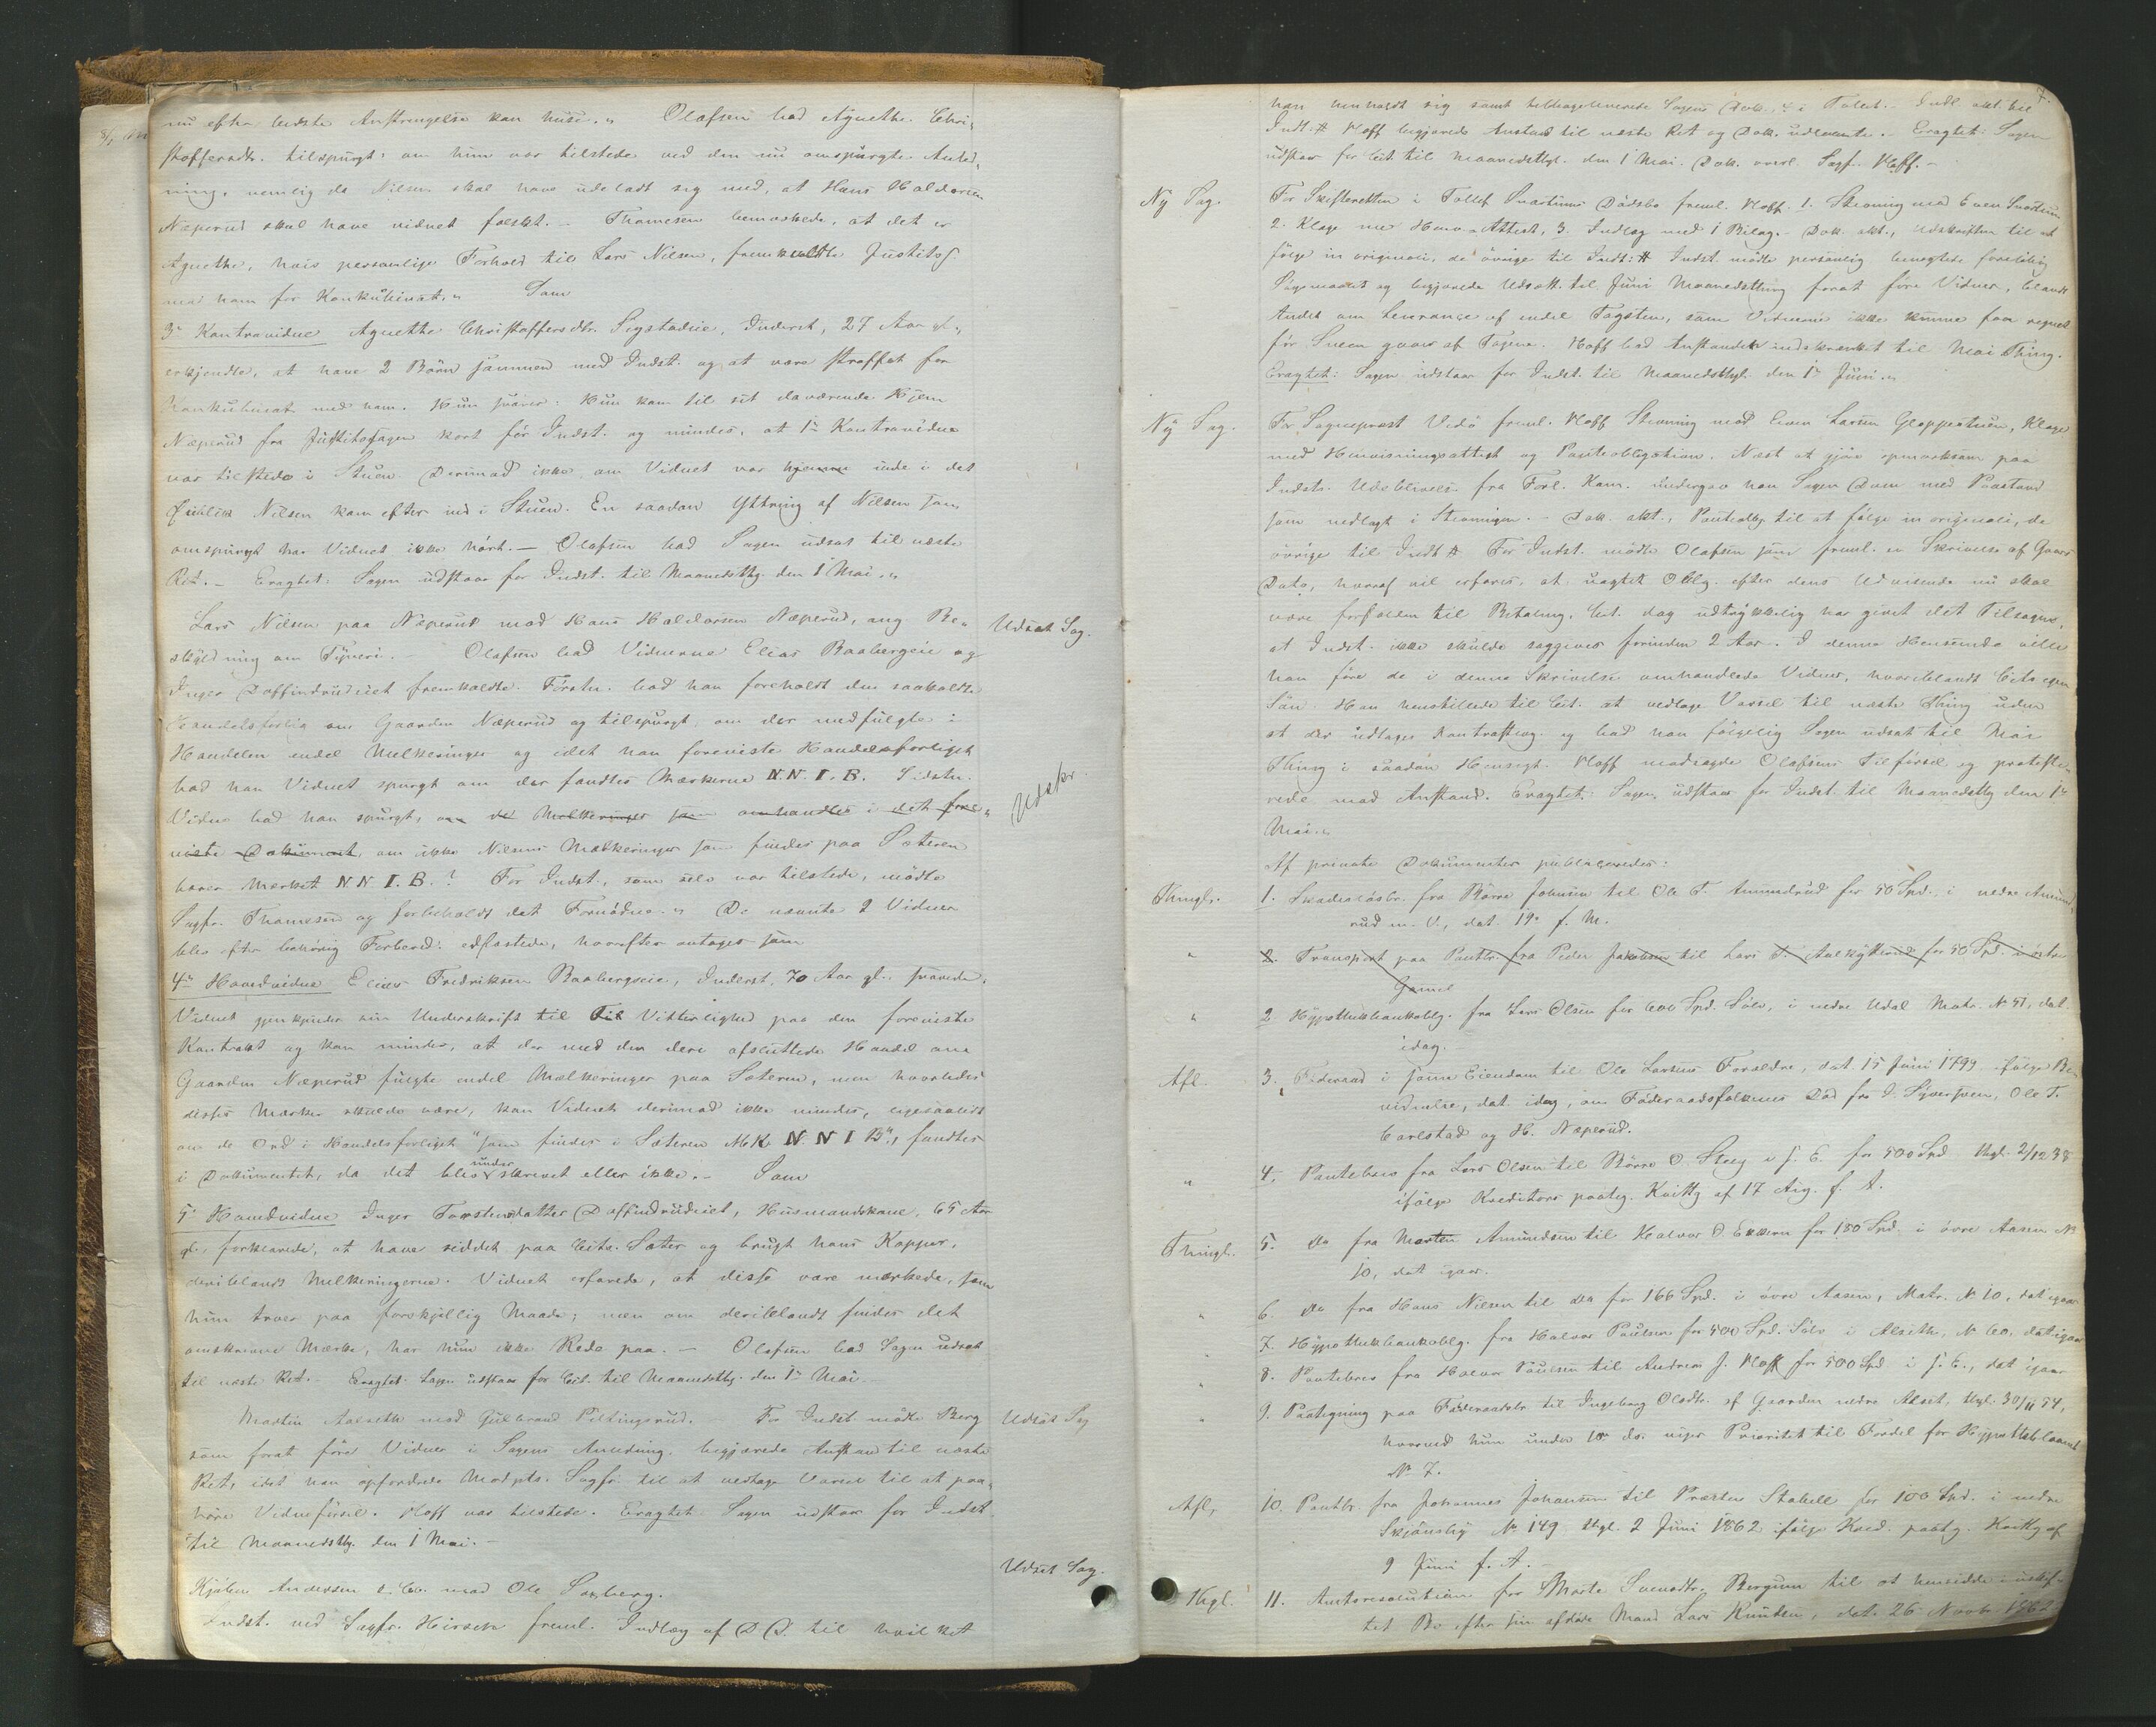 nu efter bedste Anstrengelse kan huse. „ Olafsen bad Agnethe Chri-
stoffersdtr. tilspurgt: om hun var tilstede ved den nu omspurgte Anled-
ning, nemlig da Nilsen skal have udeladt sig med, at Hans Haldorsen
Næperud skal have vidnet falskt. – Thomesen bemærkede, at det er
Agnethe, hvis personlige Forhold til Lars Nilsen, fremkaldte Justitss.
mod ham for Konkubinat. „ Som
3die Kontravidne Agnethe Christoffersdtr. Sigstadeie, Inderst, 27 Aar gl.,
erkjendte, at have 2 Börn sammen med Indst. og at være straffet for
Konkubinat med ham. Hun svarer: Hun kom til sit daværende Hjem
Næperud fra Justitssagen kort för Indst. og mindes, at 1ste Kontravidne
var tilstede i Stuen. Derimod ikke om Vidnet var hjemme inde i det
Øieblik Nilsen kom efter ind i Stuen. En saadan Yttring af Nilsen som
omspurgt har Vidnet ikke hört. – Olafsen bad Sagen udsat til næste
Ret. – Eragtet: Sagen udstaar for Indst. til Maanedsthg. den 1 Mai. „
Lars Nilsen paa Næperud mod Hans Haldorsen Næperud, ang. Be-
Udsat Sag.
skyldning om Tyveri. – Olafsen bad Vidnerne Elias Baabergeie og
Inger Doffindrudeiet fremkaldte. Förstn. bad han foreholdt den saakaldte
Handelsforlig om Gaarden Næperud og tilspurgt, om der medfulgte i
Handelen endel Melkeringer og idet han foreviste Handelsforliget
bad han Vidnet spurgt om der fandtes Mærkerne N.N.I.B. Sidstn.
Udskr.
Vidne bad han spurgt, om de Melkeringer som omhandles i det fore-
viste Dokument, om ikke Nilsens Melkeringer som findes paa Sæteren
bærer Mærket N.N.I.B.? For Indst., som selv var tilstede, mödte
Sagfr. Thomesen og forbeholdt det Fornödne. „ De nævnte 2 Vidner
blev efter behörig Forbered. edfæstede, hvorefter antages som
4de Hovedvidne Elias Fredriksen Baabergseie, Inderst, 70 Aar gl. svarede.
Vidnet gjenkjender sin Underskrift til Vitterlighed paa den foreviste
Kontrakt og kan mindes, at der med den deri afsluttede Handel om
Gaarden Næperud fulgte endel Melkeringer paa Sæteren, men hvorledes
disses Mærker skulde være, kan Vidnet derimod ikke mindes, ligesaalidt
om de Ord i Handelsforliget "som findes i Sæteren Mk. N N I B", fandtes
i Dokumentet, da det blev underskrevet eller ikke. – Som
5te Hovedvidne Inger Torstensdatter Doffindrudeiet, Husmandskone, 65 Aar
gl., forklarede, at have siddet paa Cits. Sæter og brugt hans Kopper,
deriblandt Melkeringerne. Vidnet erfarede, at disse vare mærkede, som
hun troer paa forskjellig Maade; men om deriblandt findes det
omskrevne Mærke, har hun ikke Rede paa. – Olafsen bad Sagen udsat
til næste Ret. – Eragtet: Sagen udstaar for Cit. til Maanedsthg. den 1ste Mai.
Martin Aalseth mod Gulbrand Piltingsrud. For Indst. mödte Berg
Udsat Sag
som forat före Vidner i Sagens Anledning, begjærede Anstand til næste
Ret, idet han opfordrede Modpts. Sagfr. til at vedtage Varsel til at paa-
höre Vidneförsel. Hoff var tilstede. Eragtet: Sagen udstaar for Indst.
til Maanedsthg. den 1 Mai. –
Udsat Sag.
Kjöbm. Andersen & Co. mod Ole Saxberg.
Indst. ved Sagfr. Hirsch freml. Indlæg af D.D. til hvilket
7.
han henholdt sig samt tilbageleverede Sagens Dok. 4 i Tallet. – Indl. akt. til
Indt. # Hoff begjærede Anstand til næste Ret og Dok. udlaante. – Eragtet: Sagen
udstaar for Cit. til Maanedsthg. den 1 Mai. Dok. overl. Sagf. Hoff. –
Ny Sag. For Skifteretten i Tollef Svartunns Dödsbo freml. Hoff. 1. Stevning mod Even Svartun
2. Klage med Henv. Attest, 3. Indlæg med 1 Bilag. – Dok. akt., Udskriften til at
fölge in originali, de övrige til Indt: # Indst. mödte personlig benegtede forelöbig
Sögsmaalet og begjærede Udsætt. til Juni Maanedsthing forat före Vidner, blandt
Andet om Leverance af endel Tagsten, som Vidnerne ikke kunne faa regnet
för Sneen gaar af Tagene. Hoff bad Anstanden indskrænket til Mai Thing.
Eragtet: Sagen udstaar for Indst. til Maanedsthgt. den 1ste Juni. „
Ny Sag. For Sognepræst Vedö freml. Hoff Stevning mod Even Larsen Gloppestuen, Klage
med Henvisningsattest og Panteobligation. Næst at gjöre opmærksom paa
Indsts. Udeblivelse fra Forl. Kom. undergav han Sagen Dom med Paastand
som nedlagt i Stevningen. – Dok. akt., Panteoblg. til at fölge in originali, de
övrige til Indt # For Indst. mödte Olafsen som freml. en Skrivelse af Gaars
Dato, hvoraf vil erfares, at uagtet Oblg. efter dens Udvisende nu skal
være forfalden til Betaling, Cit. dog udtrykkelig har givet det Tilsagn,
at Indst. ikke skulde saggives forinden 2 Aar. I denne Henseende ville
han före de i denne Skrivelse omhandlede Vidner, hvoriblandt Cits. egen
Sön. Han henstillede til Cit. at vedtage Varsel til næste Thing uden
at der udtages Kontrastevng. og bad han fölgelig Sagen udsat til Mai
Thing i saadan Hensigt. Hoff modsagde Olafsens Tilförsel og proteste-
rede mod Anstand. Eragtet: Sagen udstaar for Indst. til Maanedsthg den 1ste
Mai. „
Af private Dokumenter publiceredes:
Thinglr. 1. Skadeslösbr. fra Börre Johnsen til Ole T. Amundrud for 50 Spd. i nedre Amund-
rud m. V., dat. 19de f. M.
" 2. Transport paa Pantbr. fra Peder Jakobsen til Lars T. for 50 Spd. i östre
Gamel
" 2 Hypothekbankoblg. fra Lars Olsen for 600 Spd. Sölv, i nedre Udal Matr. N 51, dat.
idag. –
Afl. 3. Föderaad i samme Eiendom til Ole Larsens Forældre, dat. 15 Juni 1799 ifölge Be-
vidnelse, dat. idag, om Föderaadsfolkenes Död fra I. Syversveen, Ole T.
Carlstad og H. Næperud.
" 4. Pantebrev fra Lars Olsen til Börre O. Steeg i s. E. for 500 Spd. thgl. 2/12 38
ifölge Kreditors paateg. Kvittg af 17 Aug. f. A.
Thingl. 5. Do fra Morten Amundsen til Halvor O. Ekkern for 150 Spd. i övre Aasen No
10, dat. igaar.
" 6. Do fra Hans Nilsen til Do for 166 Spd. i övre Aasen, Matr. N. 10, dat. igaar
" 7. Hypothekbankoblg. fra Halvor Poulsen for 500 Spd. Sölv i Alseth, N 60, dat. igaar
" 8. Pantebrev fra Halvor Poulsen til Andreas J. Hoff for 500 Spd. i s. E., dat. igaar
" 9. Paategning paa Föderaadsbr. til Ingeborg Olsdtr. af Gaarden nedre Alset, thgl. 30/11 54,
hvorved hun under 10de ds. viger Prioritet til Fordel for Hypotheklaanet
No 7.
Afl, 10. Pantbr. fra Johannes Johansen til Præsten Stabell for 100 Spd. i nedre
Skjönsby N. 149 thgl. 2 Juni 1862 ifölge Kred. paatg. Kvittg af
9 Juni f. A. –
Thgl. 11. Amtsresolution for Marte Svendsdtr. Bergum til at hensidde i uskif-
tet Bo efter sin afdöde Mand Lars Knudsen, dat. 26 Novb. 1862